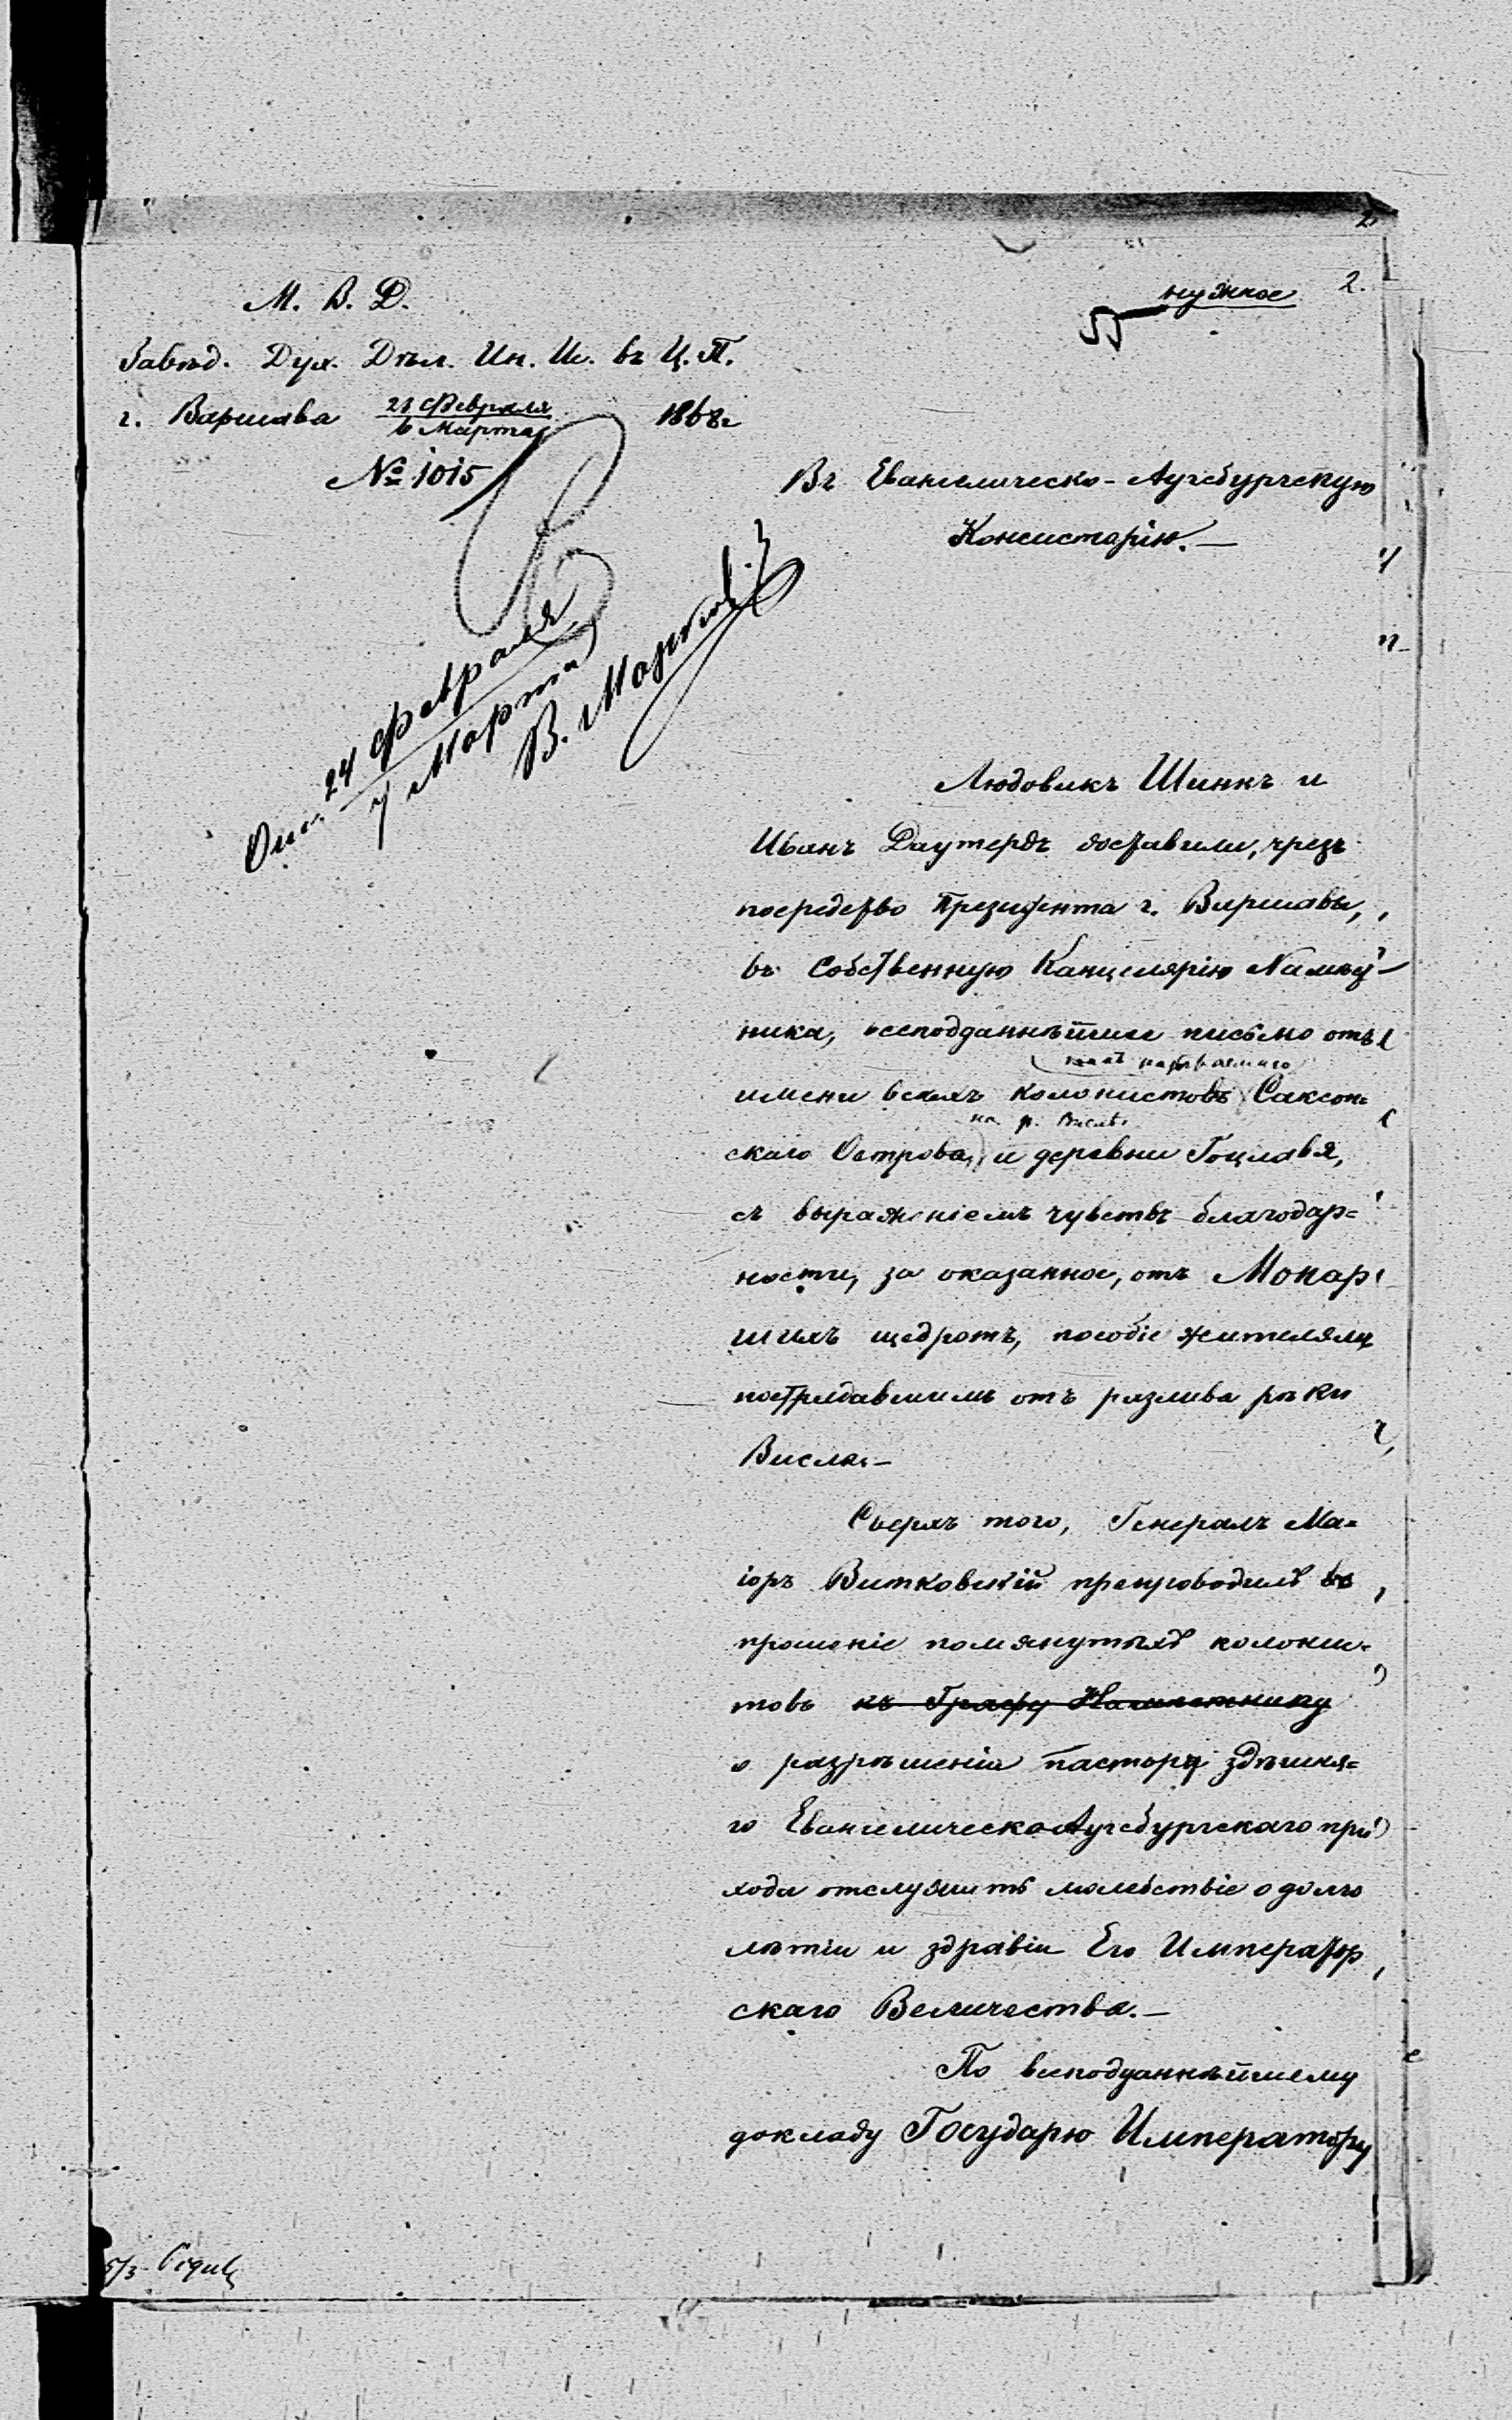 2.
нужное
2.
М. В. Д.
Завѣд. Дух. Дѣл. Ин. Ис. въ Ц. П.
г. Варшава 23 Февраля / 6 Марта 1868 г
№ 1015
Въ Евангелическо-Аугсбургскую
Консисторію.—
24 Февраля
7 Марта
В.
Людовикъ Шинкъ и
Иванъ Даутердъ доставили, чрезъ
посредство Президента г. Варшавы,
въ Собственную Канцелярію Намѣст-
ника, всеподданнѣйшее письмо отъ
такъ называемаго
имени всѣхъ колонистовъ (Саксон=
на р. Вислѣ
скаго Острова,) и деревни Гоцлавя,
съ выраженіемъ чувствъ благодар=
ности, за оказанное, отъ Монар
шихъ щедротъ, пособіе жителямъ
пострадавшимъ отъ разлива рѣки
Вислы.—
Сверхъ того, Генералъ Ма=
іоръ Витковскій препроводилъ
прошеніе помянутыхъ колонис=
товъ къ Графу Намѣстнику
о разрѣшеніи пастору здѣшня=
го Евангелическо Аугсбургскаго при
хода отслужить молебствіе о долго
лѣтіи и здравіи Его Император
скаго Величества.—
По всеподданнѣйшему
докладу Государю Императору
5/3